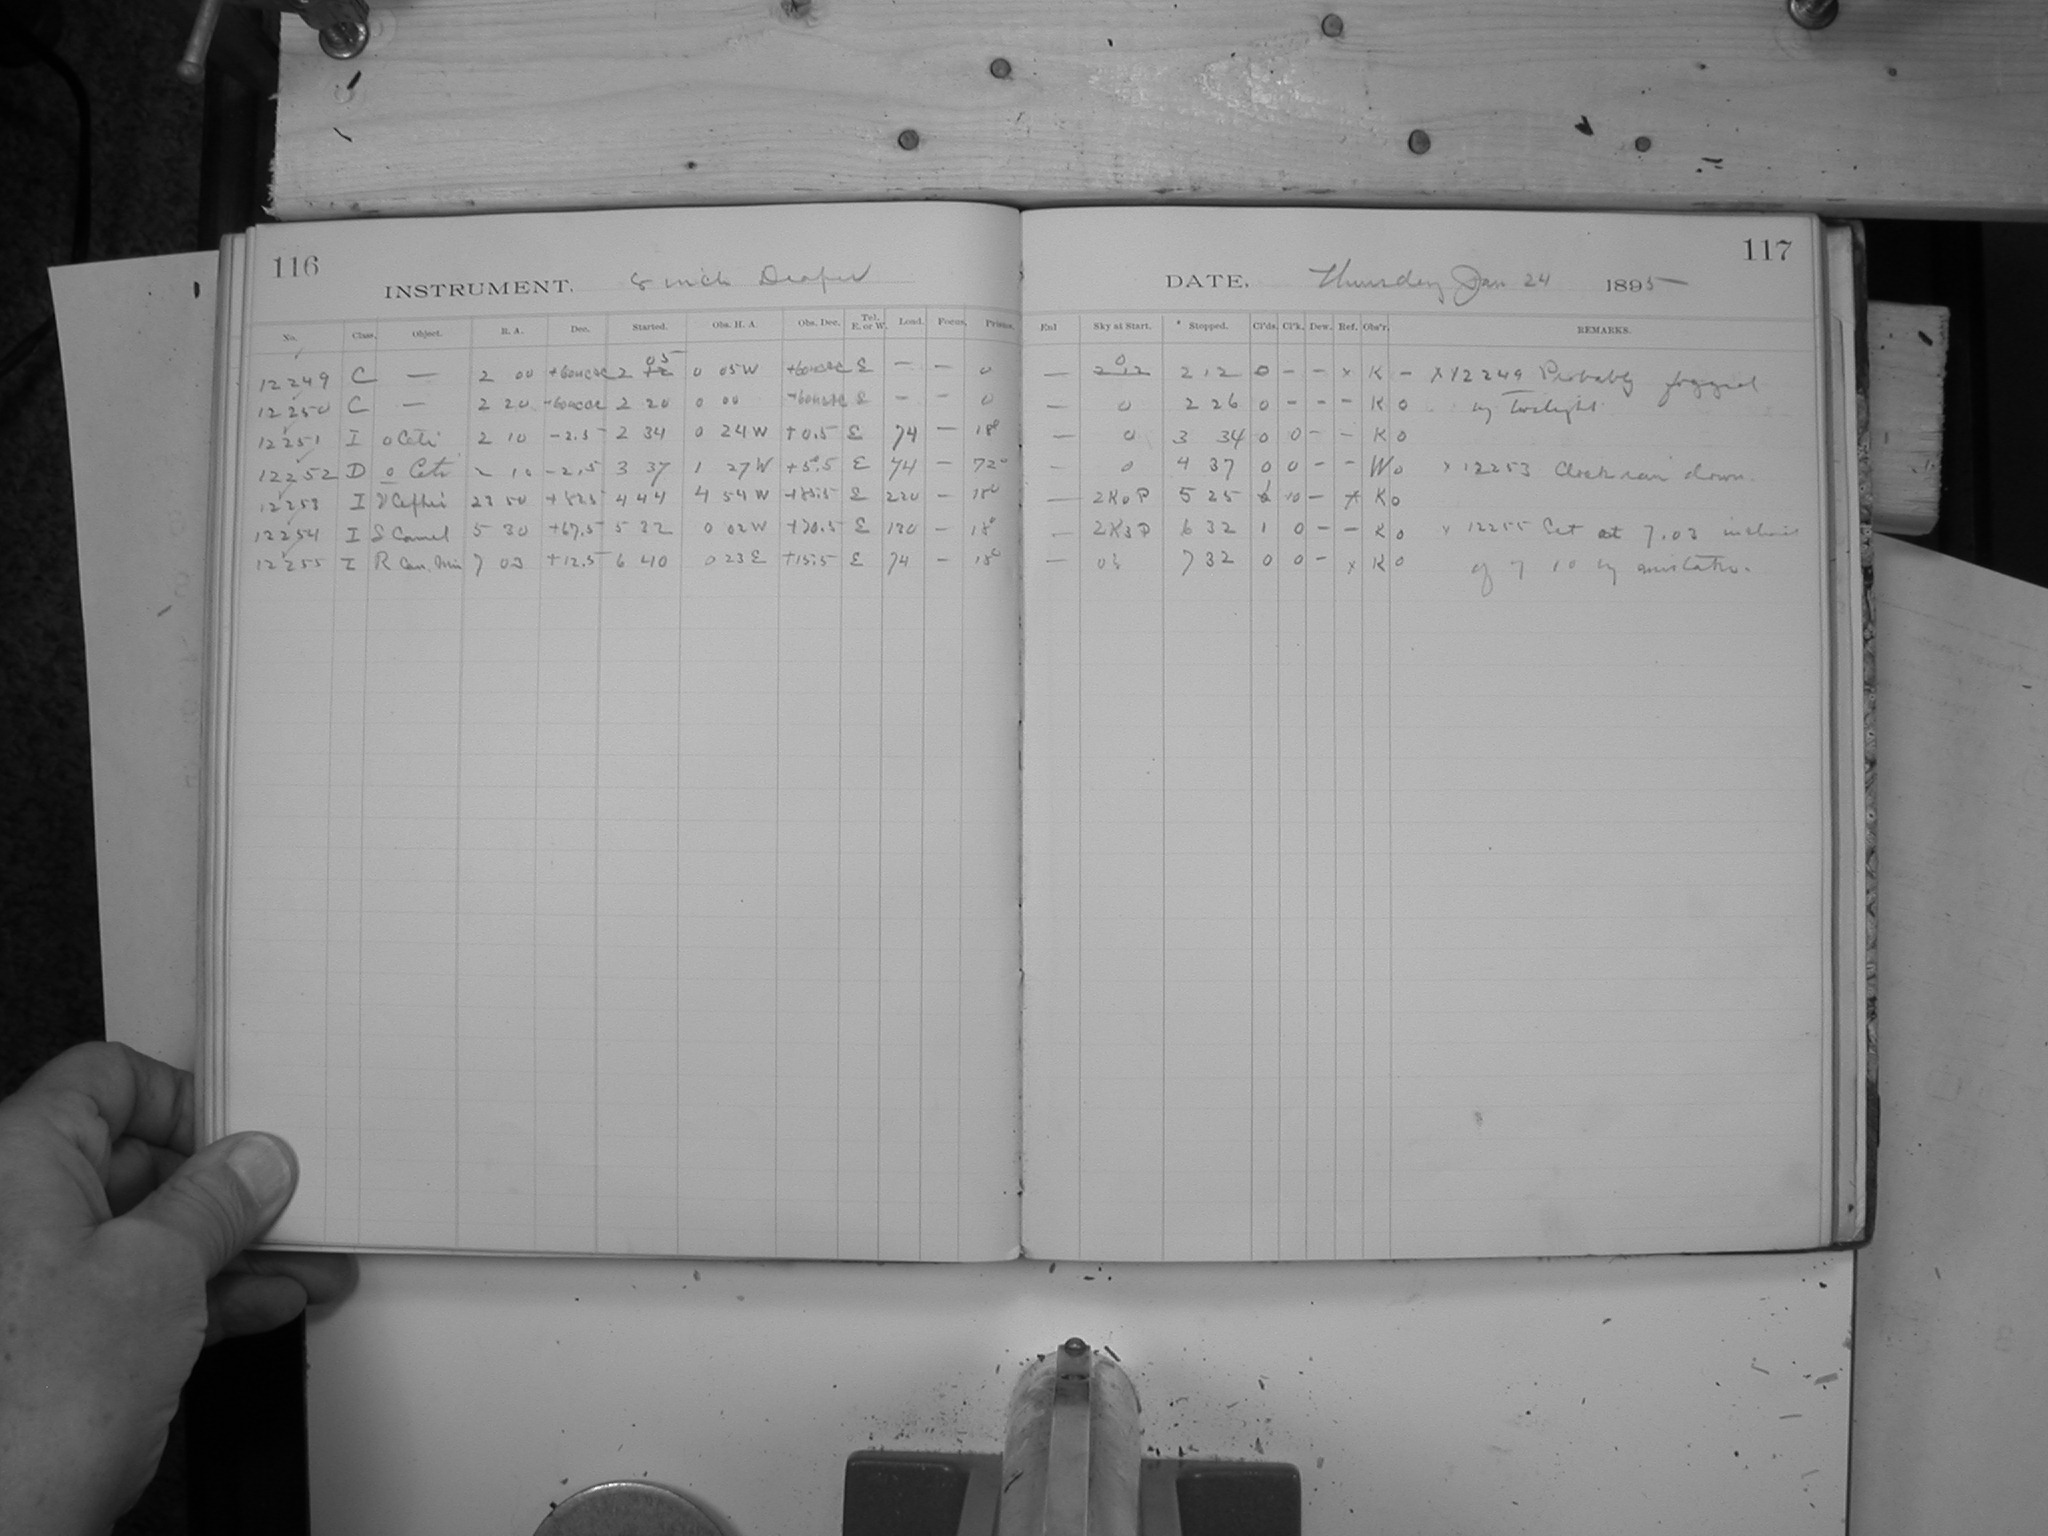 116
INSTRUMENT. 8 inch Draper
No. Class. Object. R. A. Dec. Started. Obs. H. A. Obs. Dec. Tel. E. or W. Load. Focus. Prisms.
12249 C — 2 00 2 05 12 0 05 W E — — 0
12250 C — 2 20 2 20 0 00 E — — 0
12251 I o Ceti 2 10 -2.5 2 34 0 24 W +0.5 E 74 — 18°
12252 D o Ceti 2 10 -2.5 3 37 1 27 W +5.5 E 74 — 72°
12253 I V Cephei 23 50 +82.5 4 44 4 54 W +85.5 E 220 — 18°
12254 I S Camel 5 30 +67.5 5 32 0 02 W +70.5 E 130 — 18°
12255 I R Can. Min 7 03 +12.5 6 40 0 23 E +15.5 E 74 — 18°
117
DATE. Thursday Jan 24 1895
Enl Sky at Start. Stopped. Cl'ds. Cl'k. Dew. Ref. Obs'r. REMARKS.
— 0 2.12 2.12 0 - - x K - x 12249 Probably fogged
— 0 2 26 0 - - - K 0 by twilight
— 0 3 34 0 0 - - K 0
— 0 4 37 0 0 - - W 0 x 12253 Clock ran down.
— 2K0P 5 25 10 - x K 0
— 2K3P 6 32 1 0 - - K 0 x 12255 Set at 7.03 instead
— 7 32 0 0 - x K 0 of 7 10 by mistake.